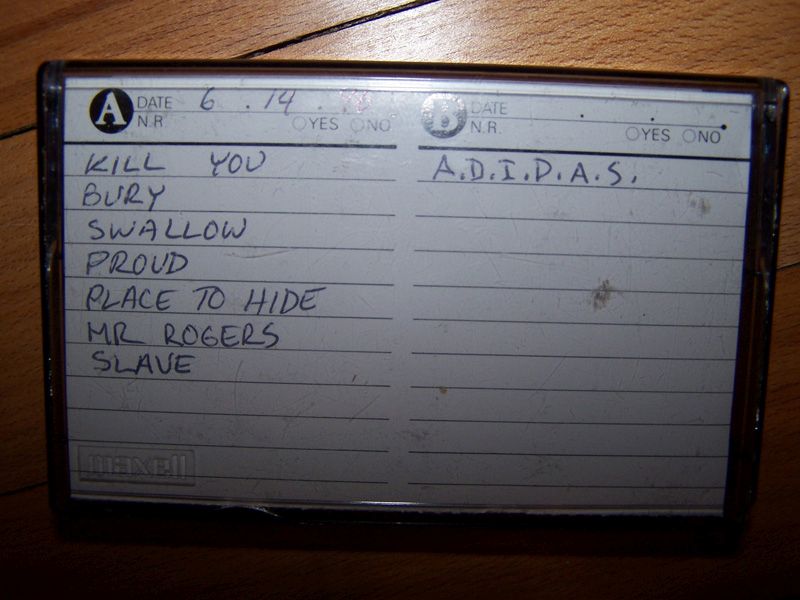 A DATE 6 . 14 .
N.R. YES NO
KILL YOU
BURY
SWALLOW
PROUD
PLACE TO HIDE
MR ROGERS
SLAVE
maxell
B DATE . . .
N.R. YES NO
A.D.I.D.A.S.